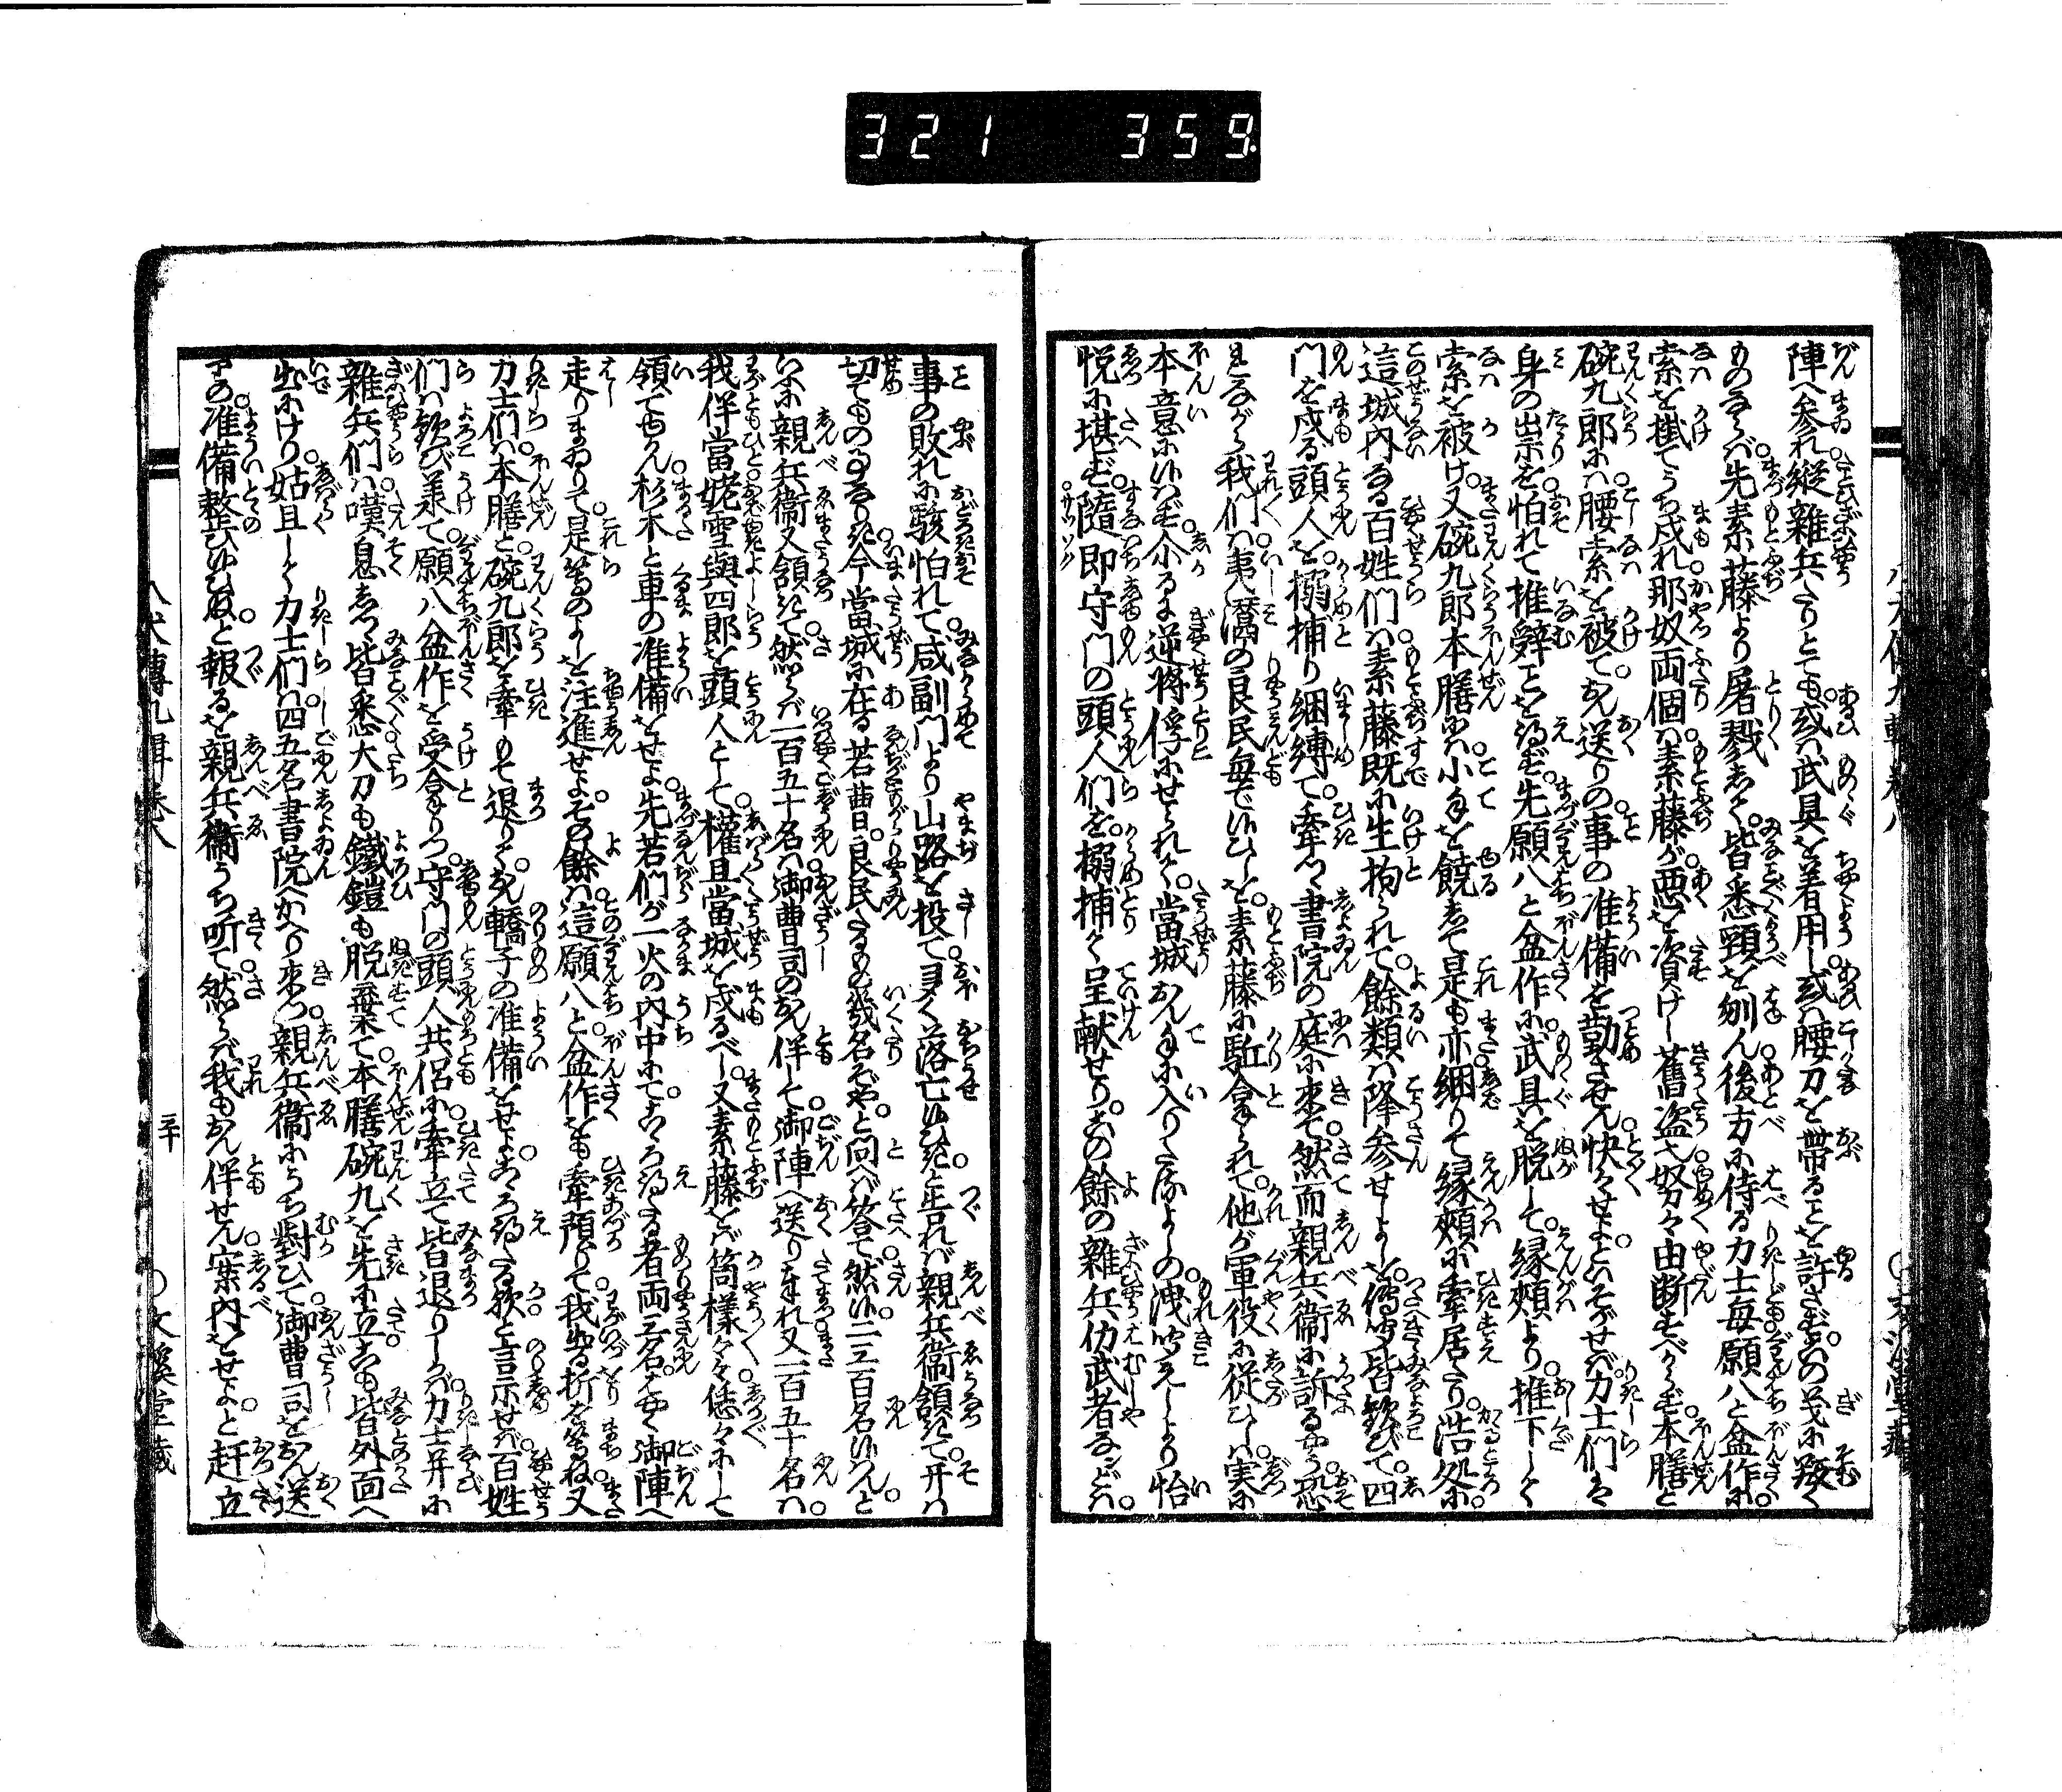 321 359
陣へ参れ縦雑兵たりとても或ハ武具を着用し或ハ腰刀を帯ることを許さずこの義に叛く
ものあらバ先素藤より屠戮しく皆悉頸を刎ん後方に侍る力士毎願八と盆作に
索を掛てうち戍れ那奴両個ハ素藤が悪を資けし舊盗也努々由断すべからず本膳と
碗九郎にハ腰索を被ておん送りの事の准備を勤させん快々せよといそがせバ力士們ハ
身の祟を怕れて推辞ことを得ず先願八と盆作に武具を脱して縁頬より推下しく
索を被け又碗九郎本膳にハ小手を饒して是も亦綑りて縁頬に牽居たり浩処に
這城内なる百姓們ハ素藤既に生拘られて餘類ハ降参せしよしを傳聞皆歓びて四
門を戍る頭人を搦捕り綑縛て牽つゝ書院の庭に来て然而親兵衞に訴るやう恐
ながら我們ハ夷灊の良民毎で候ひしを素藤に駈合せられて他が軍役に従ひしハ実に
本意に候はず介るに逆将俘にせられて當城おん手に入りたるよしの洩聞えしより怡
悦に堪ず隨即守門の頭人們を搦捕て呈献せりこの餘の雑兵仂武者などハ
事の敗れに駭怕れて咸副門より山路を投て多く落亡候ひきと告れバ親兵衞領きて开ハ
切てもの事なりき今當城に在る若曹良民たるもの幾名ぞやと問へバ答て然ン候二三百名候はんと
いふに親兵衞又領きて然らバ一百五十名ハ御曹司のおん伴して御陣へ送りまゐれ又一百五十名ハ
我伴當姥雪與四郎を頭人として權且當城を戍るべし又素藤をバ箇様々々恁々にして
領てゆかん杉木と車の准備をせよ先若們が一火の内中にてこゝろ得たる者両三名とく御陣へ
走りまゐりて是等のよしを注進せよその餘ハ這願八と盆作をも牽預りて我出る折を等ね又
力士們ハ本膳と碗九郎を牽もて退りておん轎子の准備をせよこゝろ得たる歟と言示せバ百姓
們ハ歓び羕て願八盆作を受合とりつ守門の頭人共侶に牽立て皆退りしかバ力士并に
雑兵們ハ嘆息しつゝ皆悉大刀も鐵鎧も脱棄て本膳碗九を先に立してこも皆外面へ
出にけり姑且して力士們ハ四五名書院へかへり来つ親兵衞にうち對ひて御曹司をおん送
りの准備整ひ候ひぬと報るを親兵衞うち听て然らバ我もおん伴せん案内をせよと赶立
八犬傳九輯巻八
三十
文溪堂藏